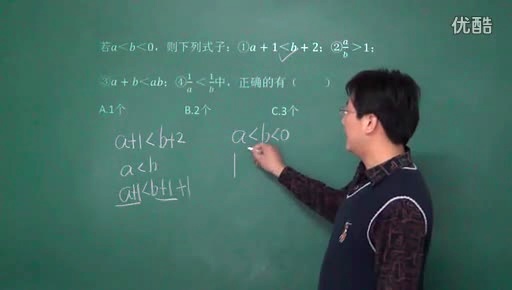 优酷
若a<b<0，则下列式子：①a+1<b+2；②a/b>1；
③a+b<ab；④1/a<1/b中，正确的有（ ）
A.1个 B.2个 C.3个
a+1<b+2
a<b
a+1<b+1+1
a<b<0